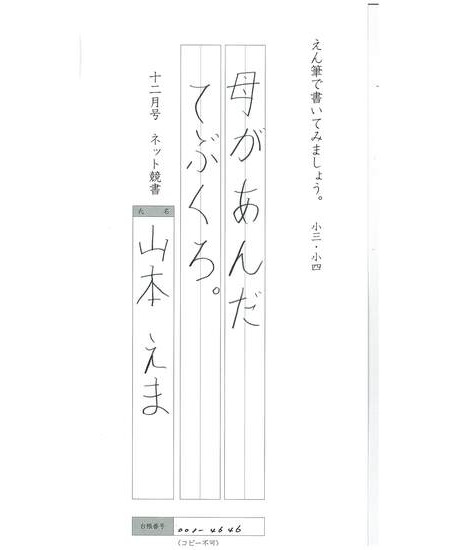 えん筆で書いてみましょう。 小三・小四
母があんだ
てぶくろ。
十二月号 ネット競書
氏 名
山本 えま
台帳番号
001-4646
(コピー不可)